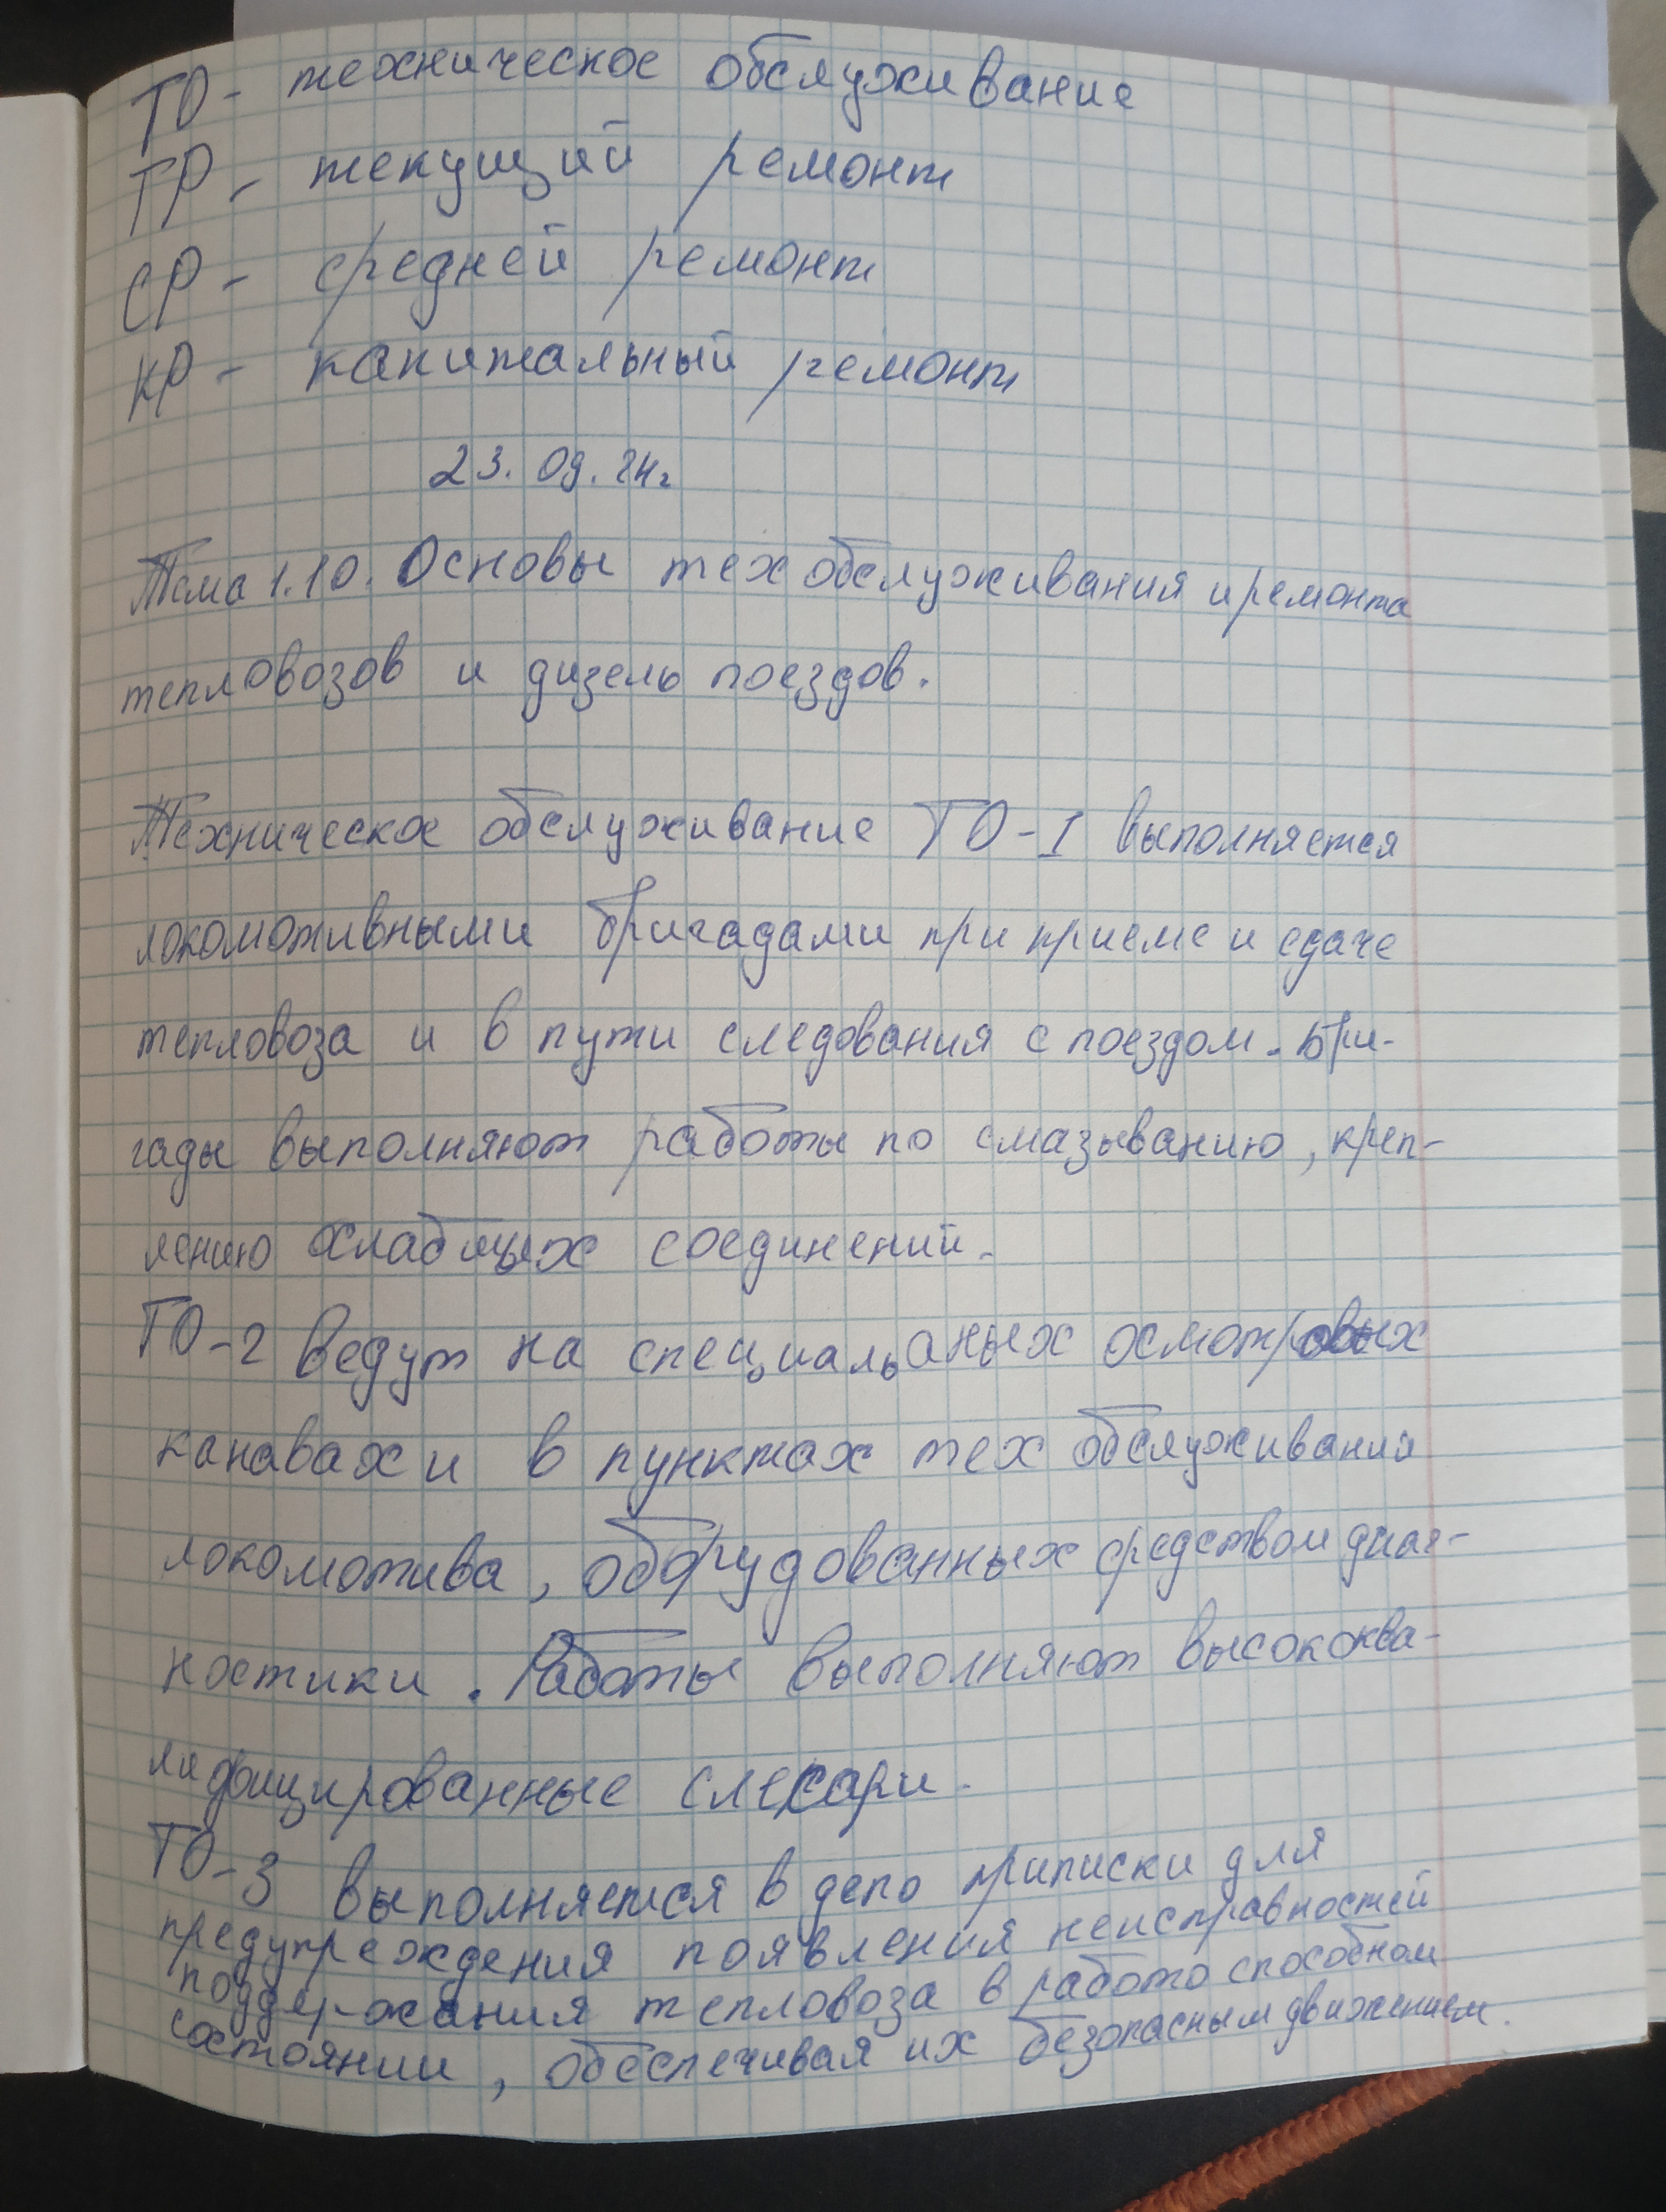 ТО - техническое обслуживание
ТР - текущий ремонт
СР - средней ремонт
КР - капитальный ремонт
23. 09. 24г
Тема 1.10. Основы тех обслуживания и ремонта
тепловозов и дизель поездов.
Техническое обслуживание ТО-1 выполняется
локомотивными бригадами при приеме и сдаче
тепловоза и в пути следования с поездом. Бри-
гады выполняют работы по смазыванию, креп-
лению соединений.
ТО-2 ведут на специальаных осмотровых
канавах и в пунктах тех обслуживания
локомотива, оборудованных средством диаг-
ностики. Работы выполняют высококва-
лифицированные слесари.
ТО-3 выполняется в депо приписки для
предупреждения появления неисправностей
поддержания тепловоза в работо способном
состоянии, обеспечивая их безопасным движением.